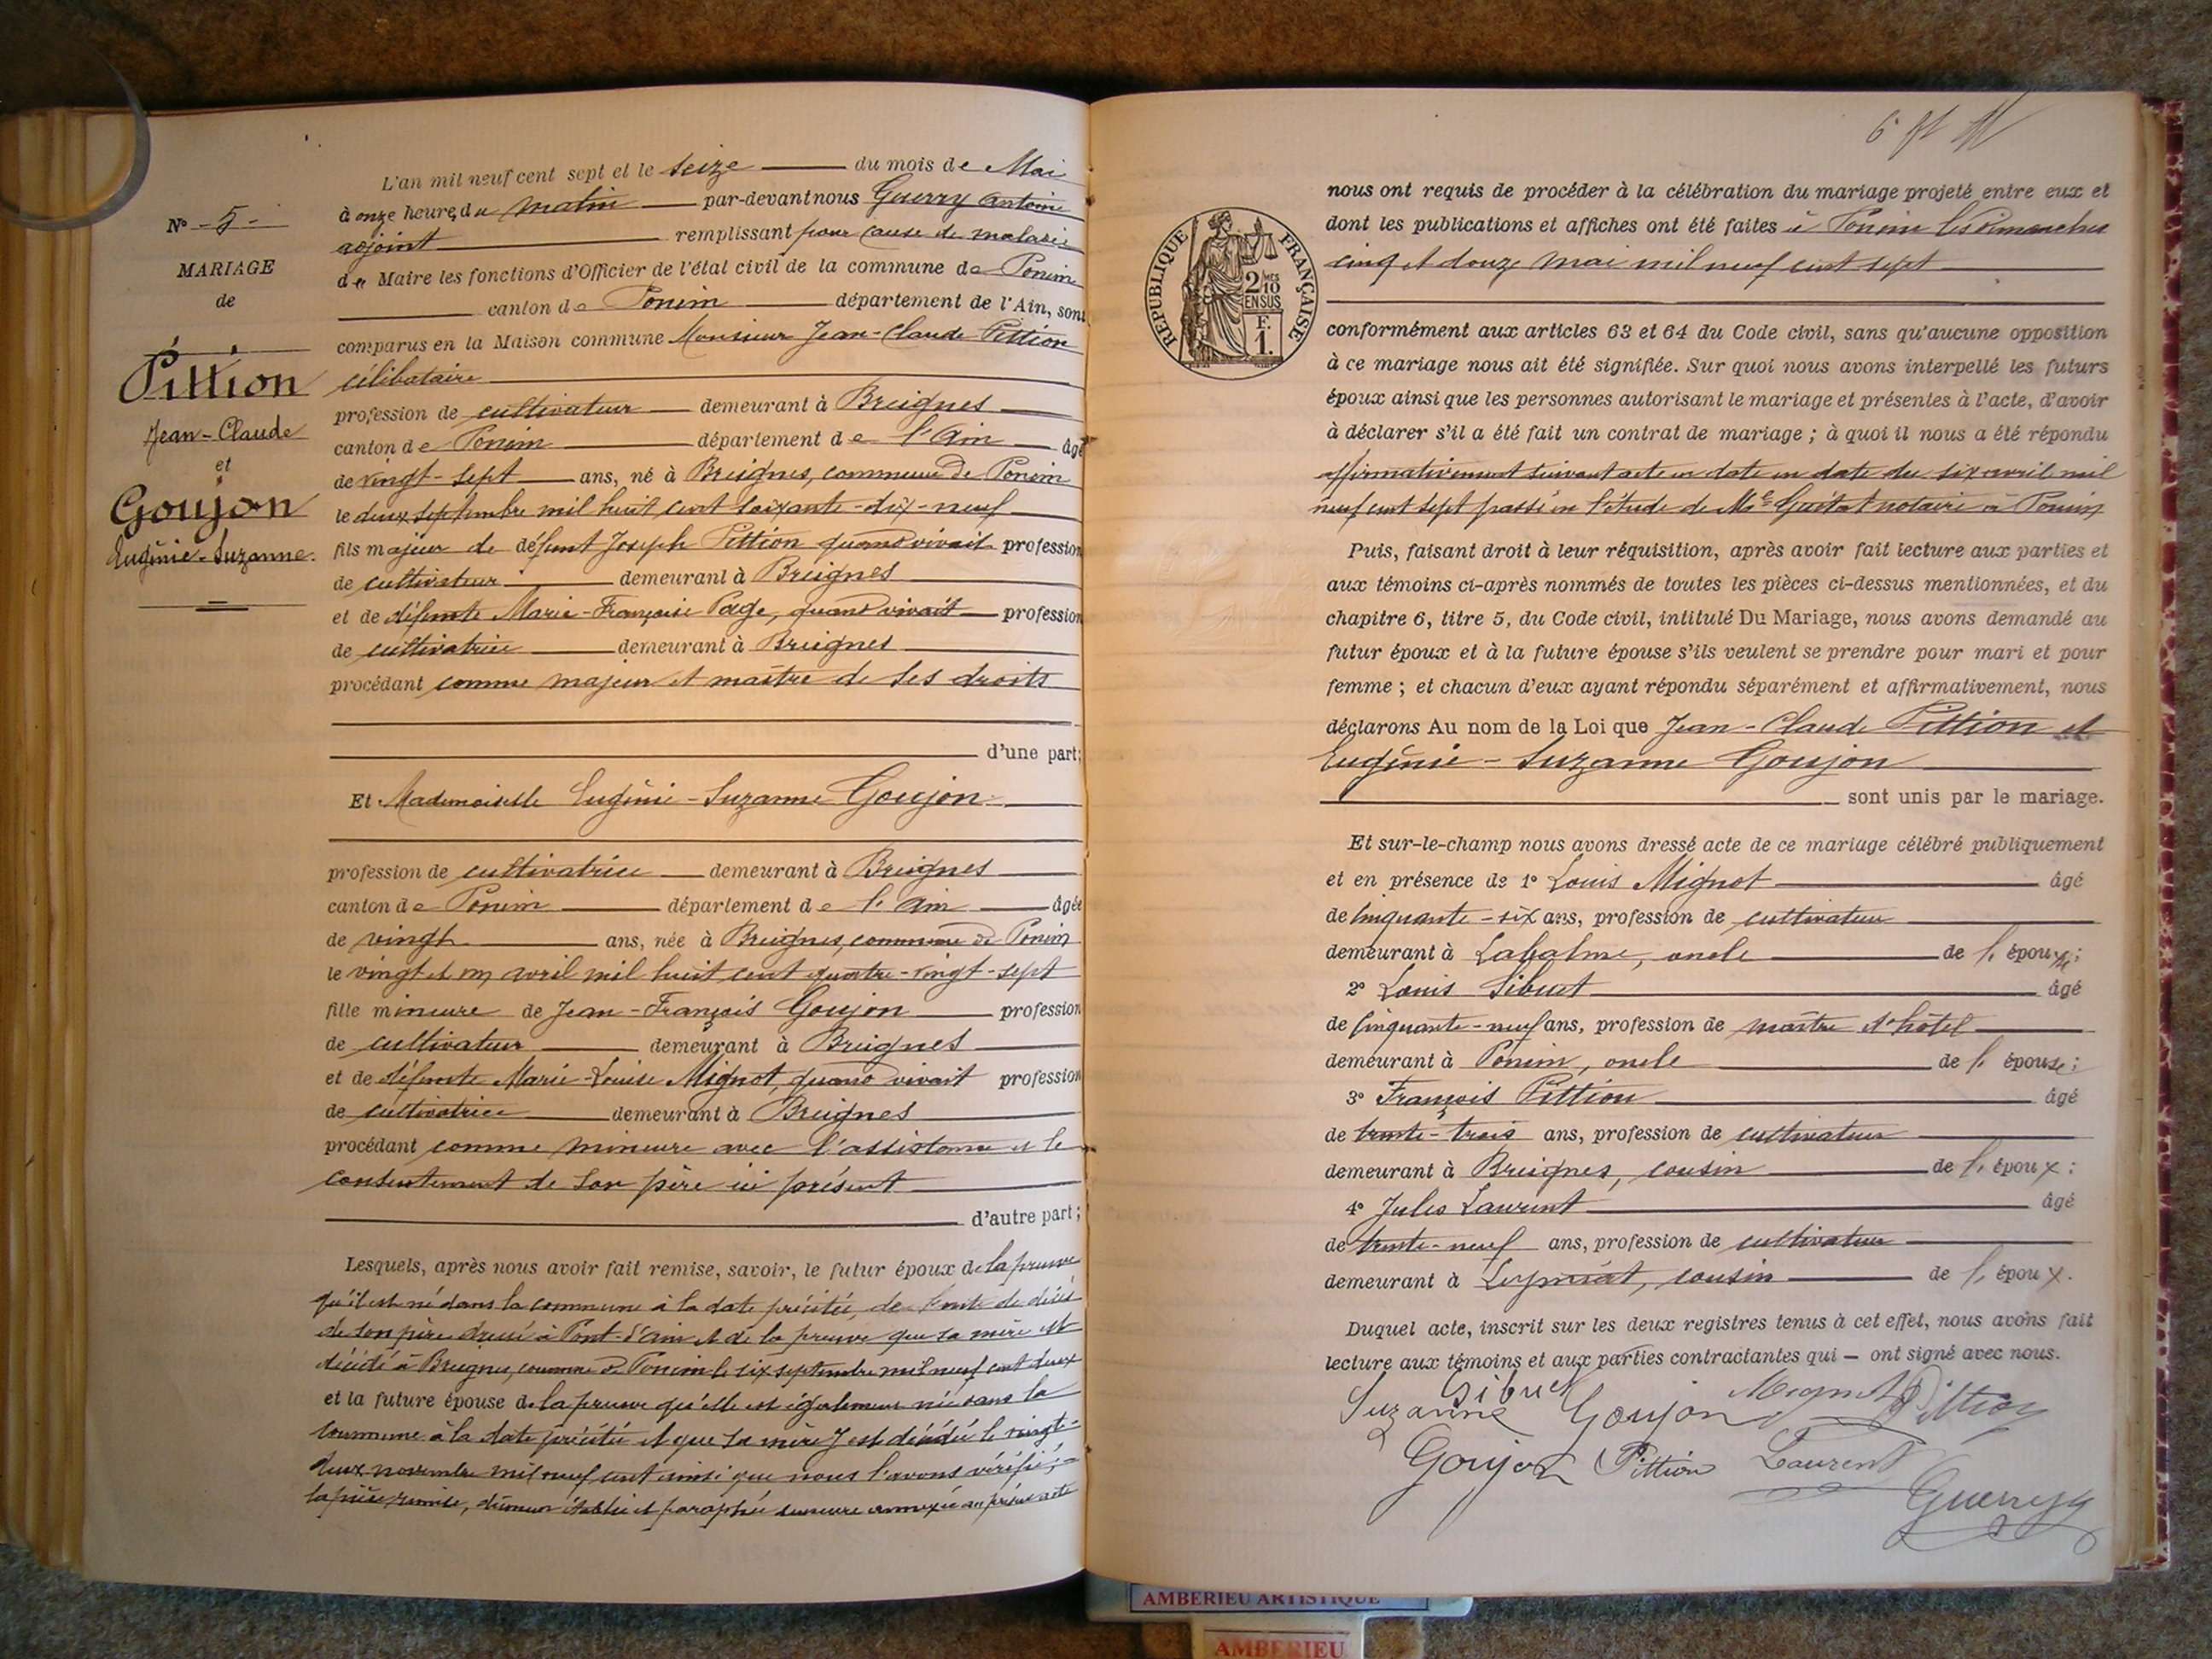 L'an mil neuf cent sept et le seize du mois de Mai
à onze heures du matin par-devant nous Guerry Antoine
adjoint remplissant pour cause de maladie
du Maire les fonctions d'Officier de l'état civil de la commune de Poncin
canton de Poncin département de l'Ain, sont
comparus en la Maison commune Monsieur Jean-Claude Pittion
célibataire
profession de cultivateur demeurant à Breignes
canton de Poncin département de l'Ain âgé
de vingt-sept ans, né à Breignes, commune de Poncin
le deux septembre mil huit cent soixante-dix-neuf
fils majeur de défunt Joseph Pittion quand vivait profession
de cultivateur demeurant à Breignes
et de défunte Marie-Françoise Page, quand vivait profession
de cultivatrice demeurant à Breignes
procédant comme majeur et maître de ses droits
d'une part;
Et Mademoiselle Eugénie-Suzanne Goujon
profession de cultivatrice demeurant à Breignes
canton de Poncin département de l'Ain âgée
de vingt ans, née à Breignes, commune de Poncin
le vingt et un avril mil huit cent quatre-vingt-sept
fille mineure de Jean-François Goujon profession
de cultivateur demeurant à Breignes
et de défunte Marie-Louise Mignot, quand vivait profession
de cultivatrice demeurant à Breignes
procédant comme mineure avec l'assistance et le
consentement de son père ici présent
d'autre part;
Lesquels, après nous avoir fait remise, savoir, le futur époux de la preuve
qu'il est né dans la commune à la date précitée, de l'acte de décès
de son père dressé à Pont-d'Ain et de la preuve que sa mère est
décédée à Breignes, commune de Poncin le six septembre mil neuf cent deux
et la future épouse de la preuve qu'elle est également née dans la
commune à la date précitée et que sa mère y est décédée le vingt-
deux novembre mil neuf cent ainsi que nous l'avons vérifié;
la pièce remise, dûment établie et paraphée demeure annexée au présent acte
N° -5-
MARIAGE
de
Pittion
Jean-Claude
et
Goujon
Eugénie-Suzanne.
nous ont requis de procéder à la célébration du mariage projeté entre eux et
dont les publications et affiches ont été faites à Poncin les Dimanches
cinq et douze mai mil neuf cent sept
RÉPUBLIQUE FRANÇAISE
2/10 MES
EN SUS
F.
1.
conformément aux articles 63 et 64 du Code civil, sans qu'aucune opposition
à ce mariage nous ait été signifiée. Sur quoi nous avons interpellé les futurs
époux ainsi que les personnes autorisant le mariage et présentes à l'acte, d'avoir
à déclarer s'il a été fait un contrat de mariage; à quoi il nous a été répondu
affirmativement suivant acte en date en date du six avril mil
neuf cent sept passé en l'étude de Me notaire à Poncin
Puis, faisant droit à leur réquisition, après avoir fait lecture aux parties et
aux témoins ci-après nommés de toutes les pièces ci-dessus mentionnées, et du
chapitre 6, titre 5, du Code civil, intitulé Du Mariage, nous avons demandé au
futur époux et à la future épouse s'ils veulent se prendre pour mari et pour
femme; et chacun d'eux ayant répondu séparément et affirmativement, nous
déclarons Au nom de la Loi que Jean-Claude Pittion et
Eugénie-Suzanne Goujon
sont unis par le mariage.
Et sur-le-champ nous avons dressé acte de ce mariage célébré publiquement
et en présence de 1° Louis Mignot âgé
de cinquante-six ans, profession de cultivateur
demeurant à Labalme, oncle de l'épouse;
2° Louis Sibuet âgé
de cinquante-neuf ans, profession de maître d'hôtel
demeurant à Poncin, oncle de l'épouse;
3° François Pittion âgé
de trente-trois ans, profession de cultivateur
demeurant à Breignes, cousin de l'époux;
4° Jules Laurent âgé
de trente-neuf ans, profession de cultivateur
demeurant à Leyment, cousin de l'époux.
Duquel acte, inscrit sur les deux registres tenus à cet effet, nous avons fait
lecture aux témoins et aux parties contractantes qui – ont signé avec nous.
Sibuet Mignot Pittion
Suzanne Goujon
Goujon Pittion Laurent
Guerry
AMBERIEU ARTISTIQUE
AMBERIEU